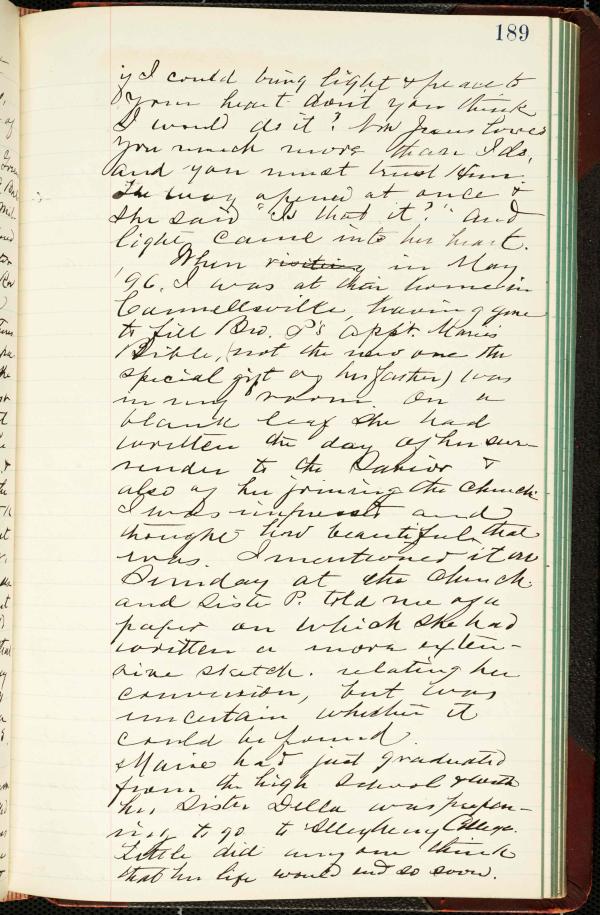 189
if I could bring light & peace to
your heart don't you think
I would do it? Now Jesus loves
you much more than I do,
and you must trust Him.
The way opened at once &
she said "Is that it?" and
light came into her heart.
When visiting in May
'96, I was at their home in
Connellsville, having gone
to fill Bro. P's appt. Marie's
Bible, (not the new one the
special gift of her father) was
in my room. On a
blank leaf she had
written the day of her sur-
render to the Savior &
also of her joining the church.
I was impressed and
thought how beautiful that
was. I mentioned it on
Sunday at the church.
and Sister P. told me of a
paper on which she had
written a more exten-
sive sketch. relating her
conversion, but was
uncertain whether it
could be found.
Marie had just graduated
from the high school & with
her Sister Della was prepar-
ing to go to Allegheny College.
Little did any one think
that her life would end so soon.